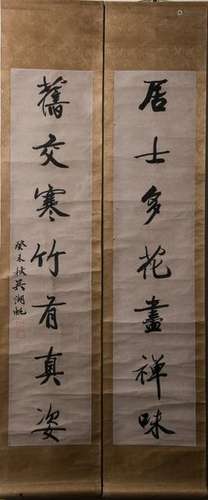 居士多花畫禪味
舊交寒竹有真姿
癸未秋吳湖帆